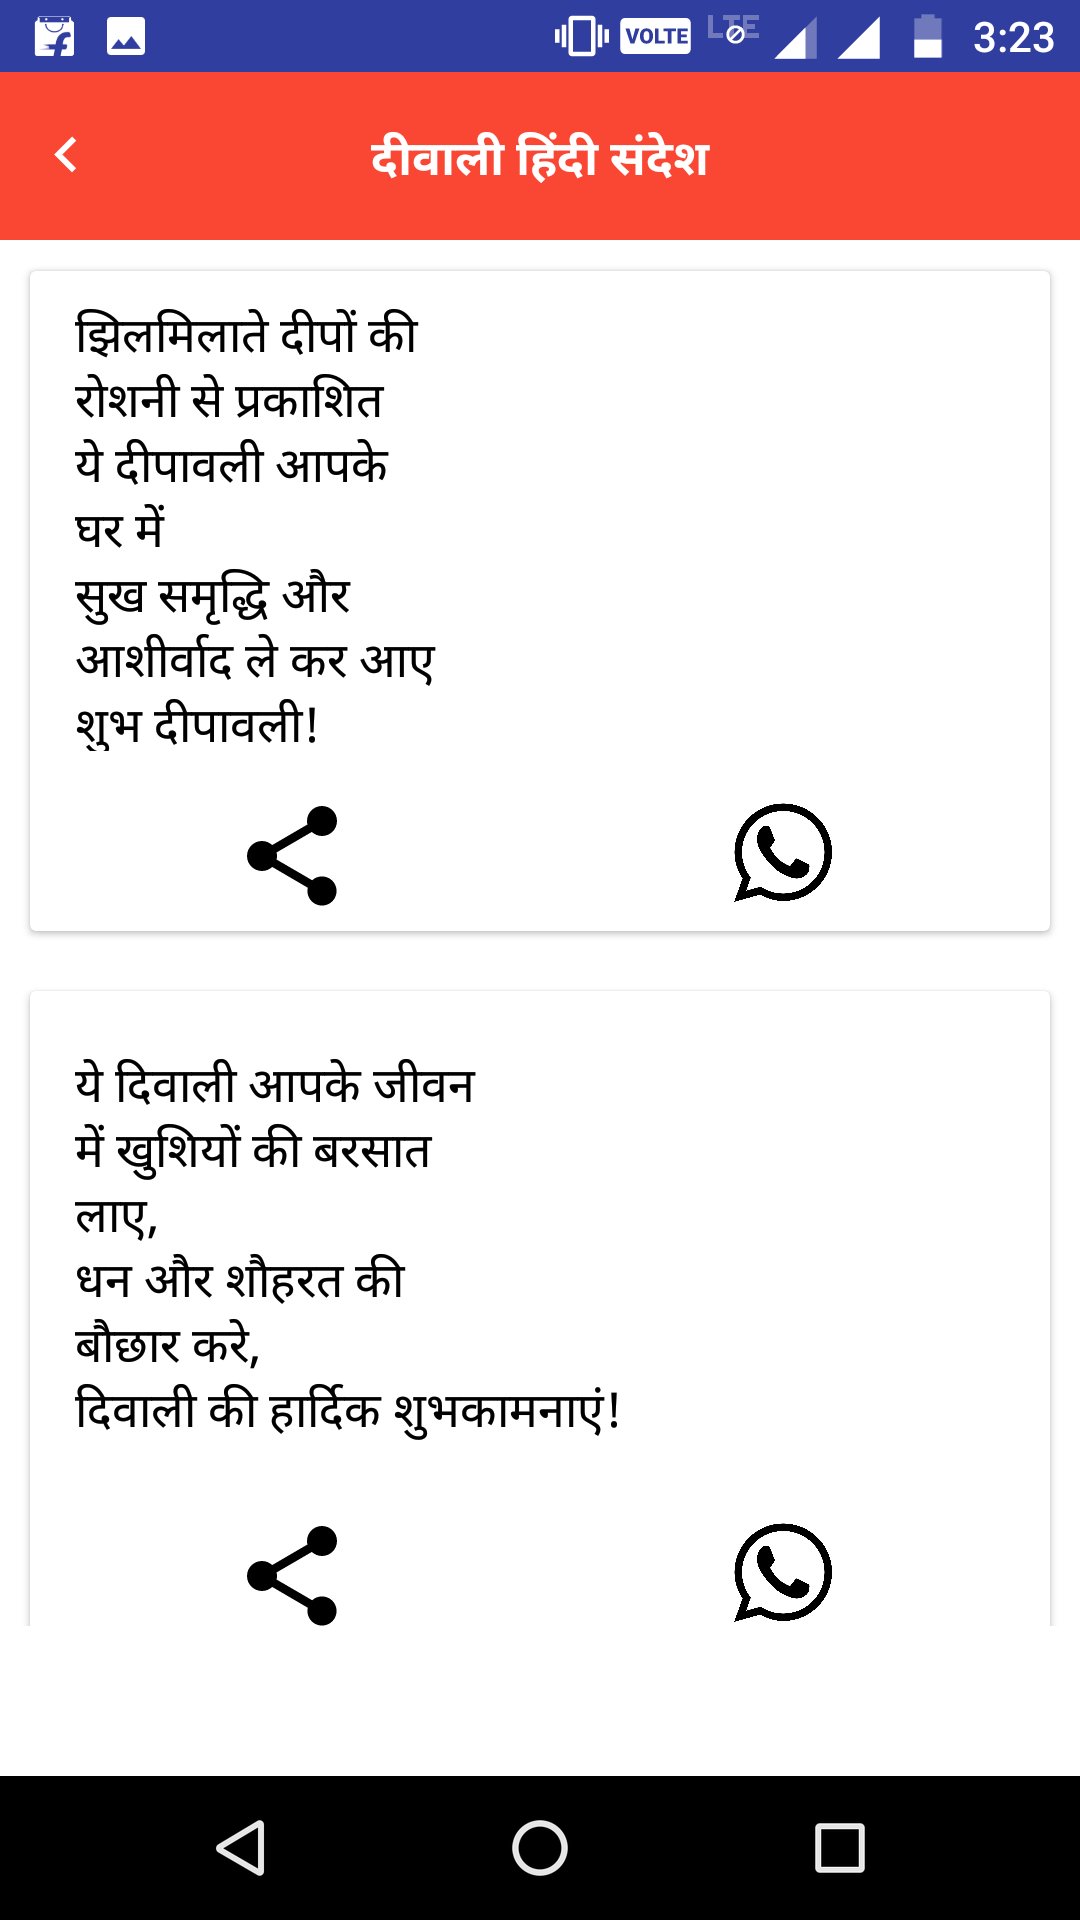 VOLTE LTE 3:23
दीवाली हिंदी संदेश
झिलमिलाते दीपों की
रोशनी से प्रकाशित
ये दीपावली आपके
घर में
सुख समृद्धि और
आशीर्वाद ले कर आए
शुभ दीपावली!
ये दिवाली आपके जीवन
में खुशियों की बरसात
लाए,
धन और शौहरत की
बौछार करे,
दिवाली की हार्दिक शुभकामनाएं!